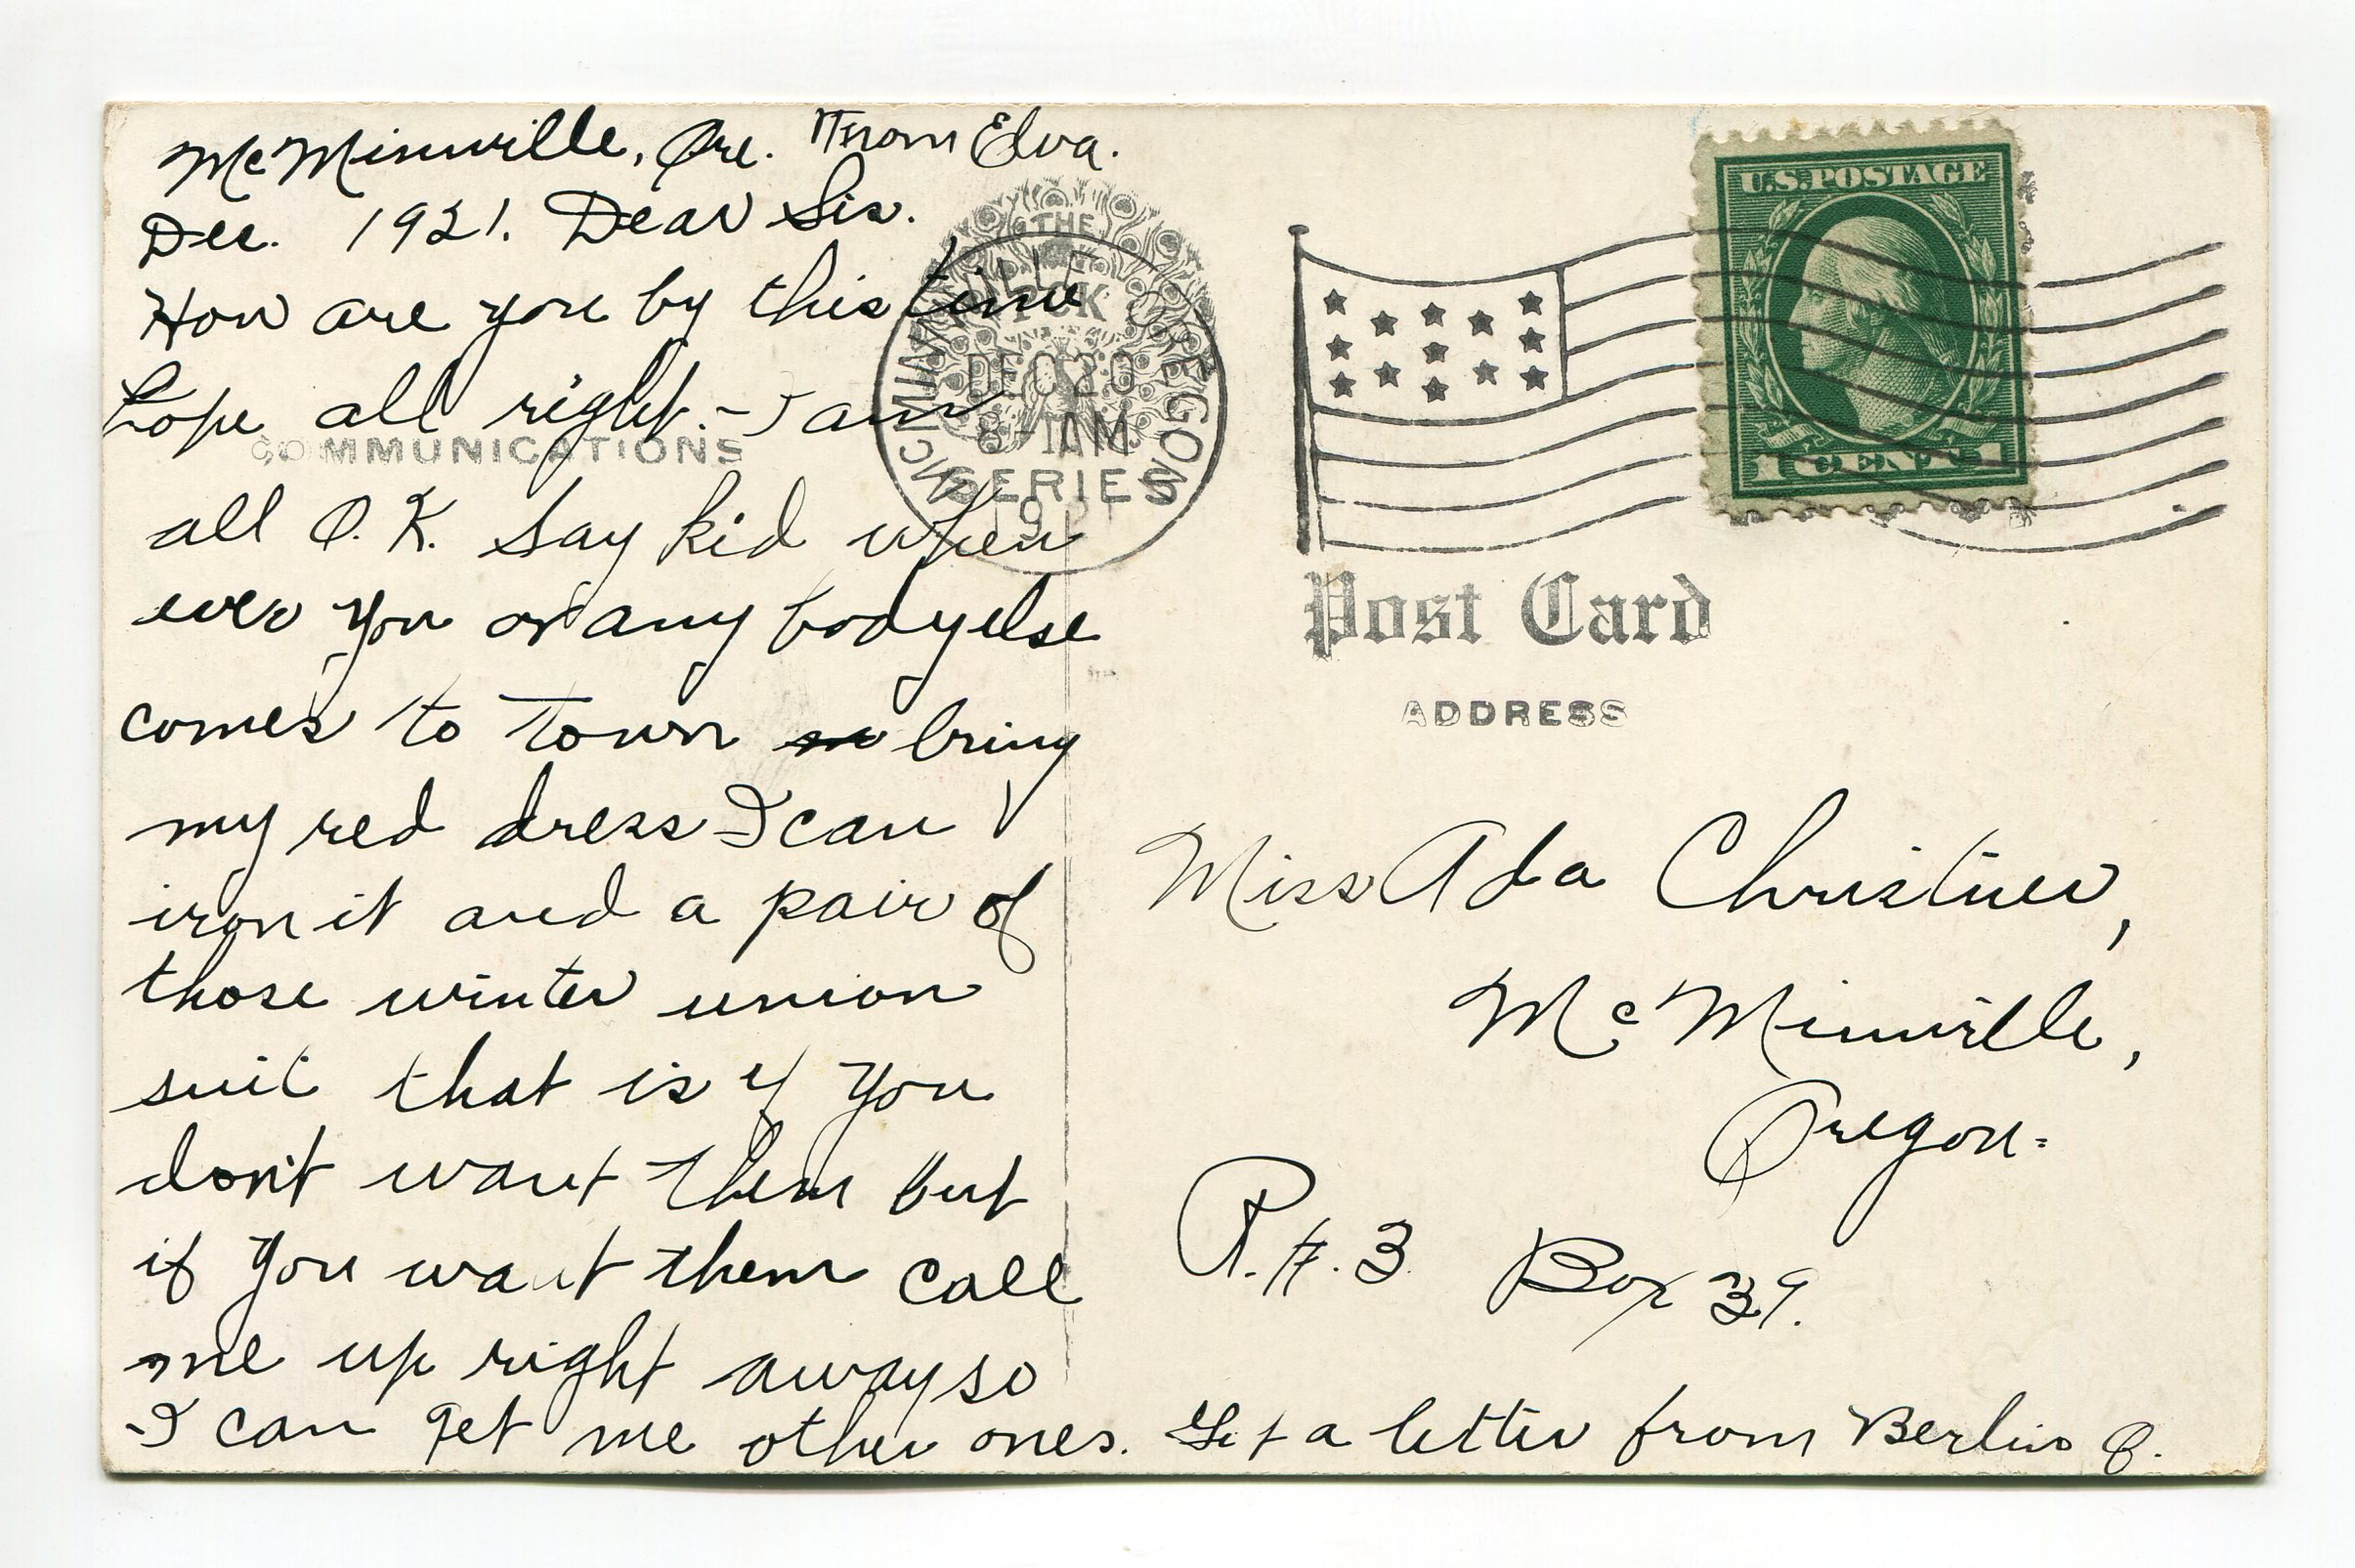 McMinnville, Ore. From Elva.
Dec. 1921. Dear Sis.
How are you by this time
hope all right. - I am
all O.K. Say kid when
ever you or any body else
comes to town bring
my red dress I can
iron it and a pair of
those winter union
suit that is if you
don't want them but
if you want them call
me up right away so
I can get me other ones. Get a letter from O.
COMMUNICATIONS
THE
SERIES
MCMINNVILLE OREGON
DEC 20
8-AM
U.S. POSTAGE
1 CENT 1
Post Card
ADDRESS
Miss Ada Christner,
McMinnville,
Oregon.
R.#.3 Box 39.